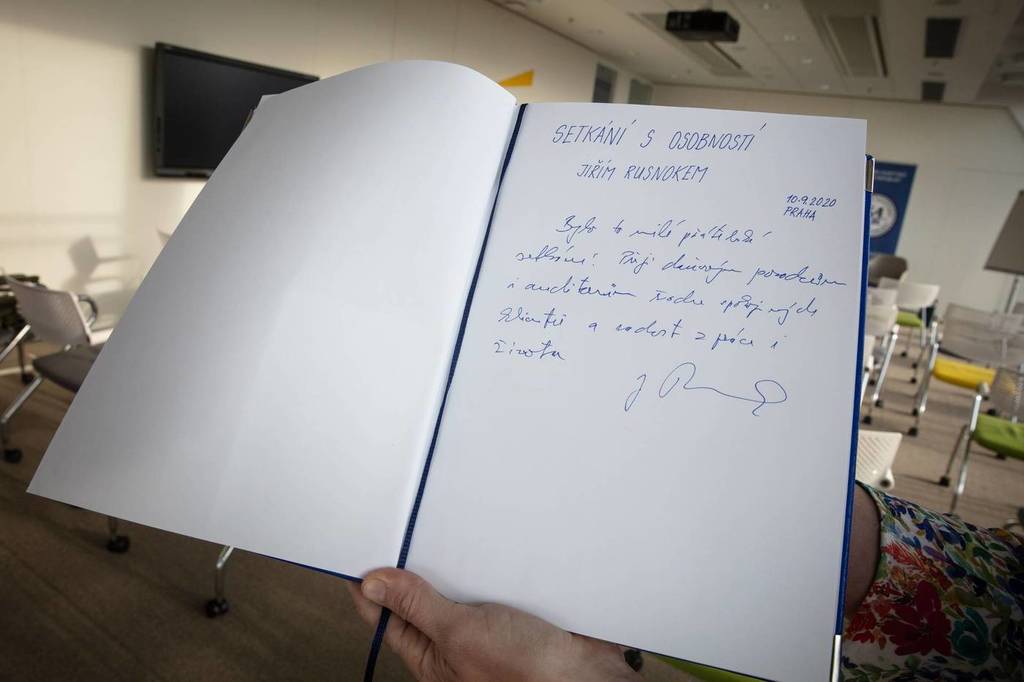 SETKÁNÍ S OSOBNOSTÍ
JIŘÍM RUSNOKEM
10.9.2020
PRAHA
Bylo to milé přátelské
setkání! Přeji daňovým poradcům
i auditorům hodně spokojených
klientů a radost z práce i
života